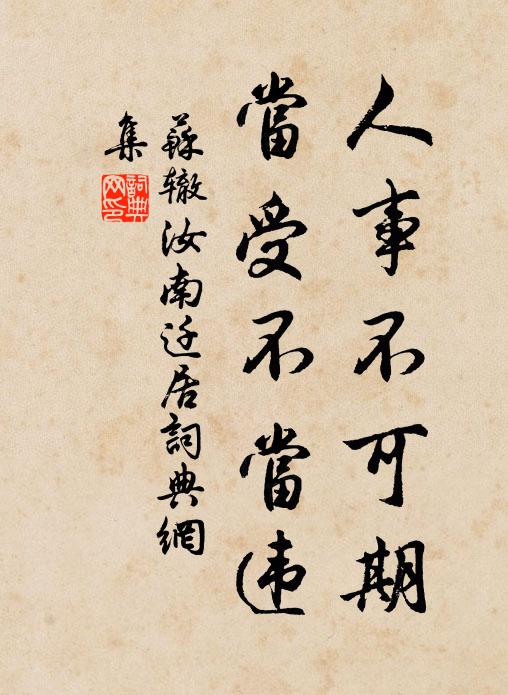 人事不可期
當受不當违
蘇辙汝南迁居詞典網
集
詞典
网印